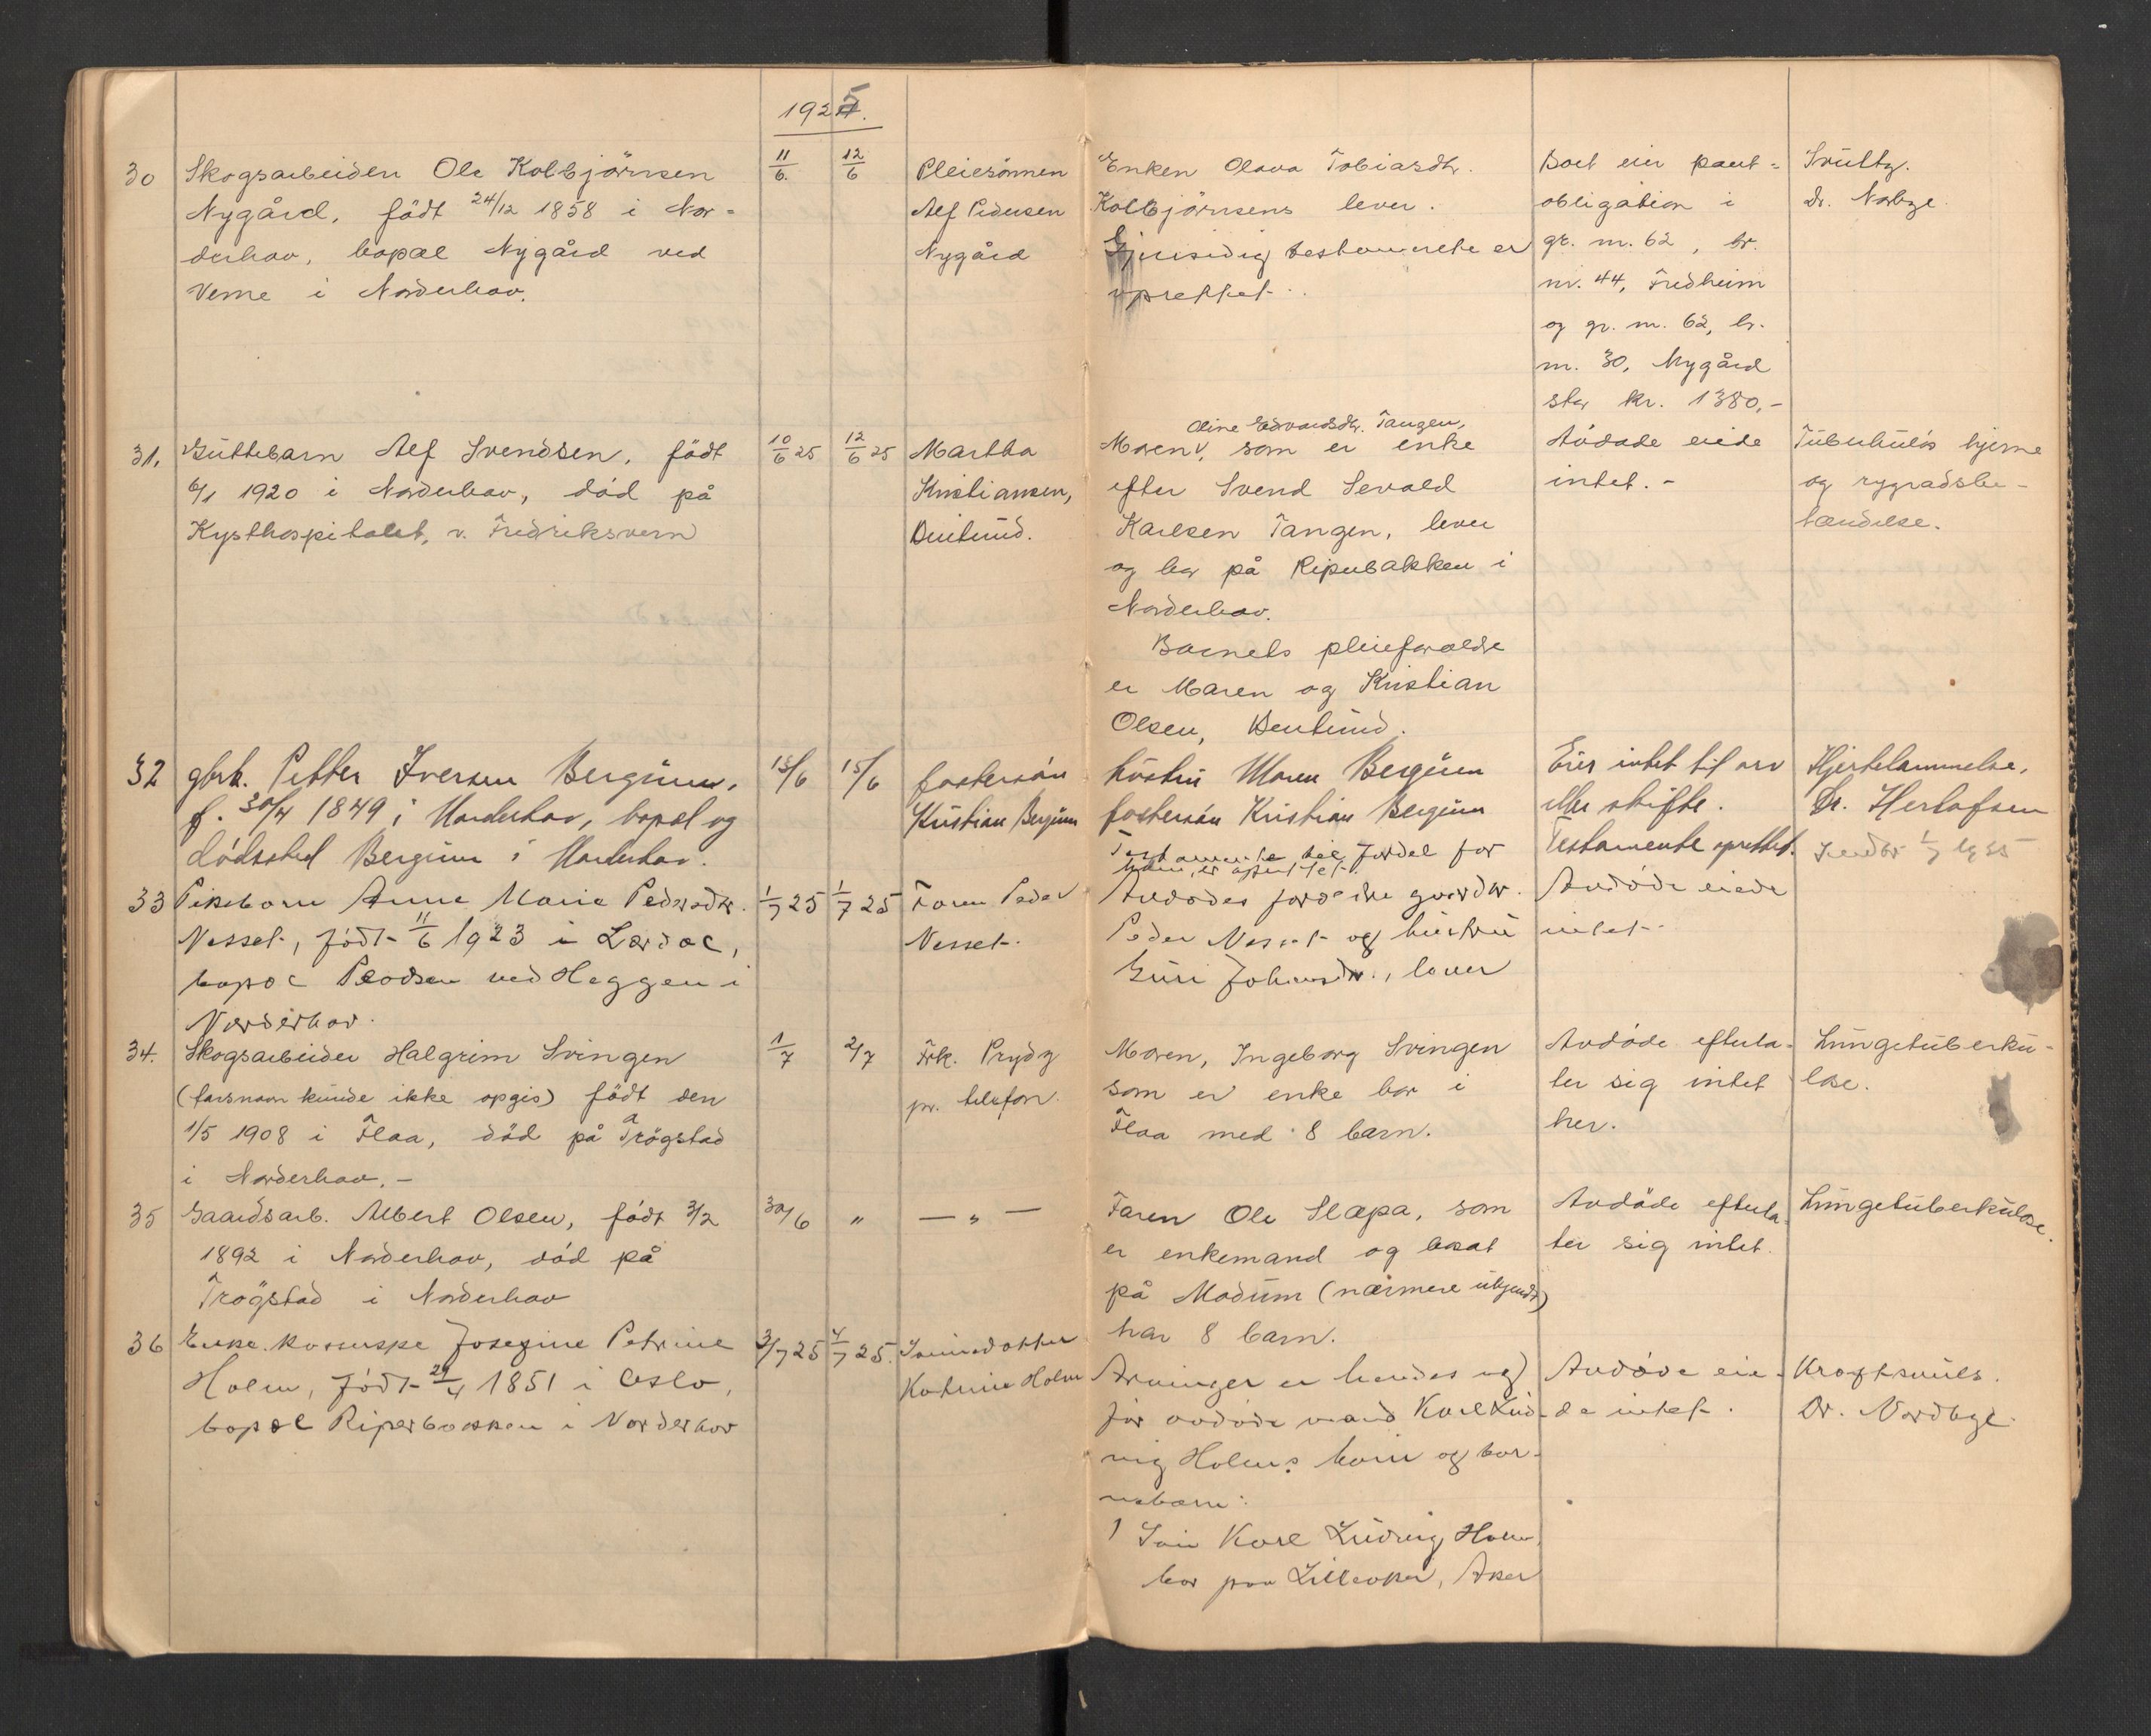 1925.
30
Skogsarbeider Ole Kolbjörnsen
Nygård, födt 24/12 1858 i Nor-
derhov, bopæl Nygård ved
Veme i Norderhov.
11/6. 12/6
Pleiesönnen
Alf Pedersen
Nygård
Enken Olava Tobiasdtr.
Kolbjörnsens lever.
Gjensidig testamente er
oprettet.
Boet eier pant-
obligation i
gr. nr. 62, br.
nr. 44, Fredheim
og gr. nr. 62, br.
nr. 30, Nygård
stor kr. 1380,-
Dr. Nordbye
31.
Guttebarn Alf Svendsen, födt
6/1 1920 i Norderhov, död på
Kysthospitalet, v. Fredriksvern
10/6 25 12/6 25
Martha
Kristiansen,
Oline Edvardsdtr. Tangen,
Moren, som er enke
efter Svend Sevald
Karlsen Tangen, lever
og bor på Riperbakken i
Norderhov.
Barnets pleieforældre
er Maren og Kristian
Olsen,
Avdöde eiede
intet.-
Tuberkulös hjerne
og rygradsbe-
tændelse.
32
gbrk. Petter Iversen Bergsund,
f. 30/4 1849 i Norderhov, bopel og
dödssted Bergsund i Norderhov.
13/6 15/6
fostersön
Kristian Bergsund
hustru Maren Bergsund
fostersön Kristian Bergsund
Testamente til fordel for
ham er oprettet.
Eier intet til arv
eller skifte.
Testamente oprettet.
Hjertelammelse.
Dr. Herlofsen
33
Pikebarn Anne Marie Pedersdtr.
Nesset, födt 11/6 1923 i Lærdal,
bopæl Plodsen ved Heggen i
Norderhov.
1/7 25 1/7 25
Faren Peder
Nesset.
Avdödes forældre gaardbr.
Peder Nesset og hustru
Guri Johansdtr., lever
Avdöde eiede
intet.
34.
Skogsarbeider Halgrim Svingen
(farsnavn kunde ikke opgis) födt den
1/5 1908 i Flaa, död på Trögstad
i Norderhov.-
1/7 2/7
Frk. Prydz
pr. telefon.
Moren, Ingeborg Svingen
som er enke bor i
Flaa med 8 barn.
Avdöde efterla-
ter sig intet
her.
Lungetuberku-
lose.
35
Gaardsarb. Albert Olsen, födt 3/2
1892 i Norderhov, död på
Trögstad i Norderhov
30/6 "
— " —
Faren Ole Slæpa, som
er enkemand og bosat
på Modum (nærmere ukjendt)
har 8 barn.
Avdöde efterla-
ter sig intet.
Lungetuberkulose.
36
Enke Josefine Petrine
Holm, födt 29/4 1851 i Oslo,
bopæl Riperbakken i Norderhov
3/7 25 4/7 25.
Sönnedatter
Katrine Holm
Arvinger er hendes og
för avdöde mand Karl Lud-
vig Holms barn og bar-
nebarn:
1 Sön Karl Ludvig Holm,
bor paa Lilleaker, Aker
Avdöde eie-
de intet.
Kræftsvuls.
Dr. Nordbye.